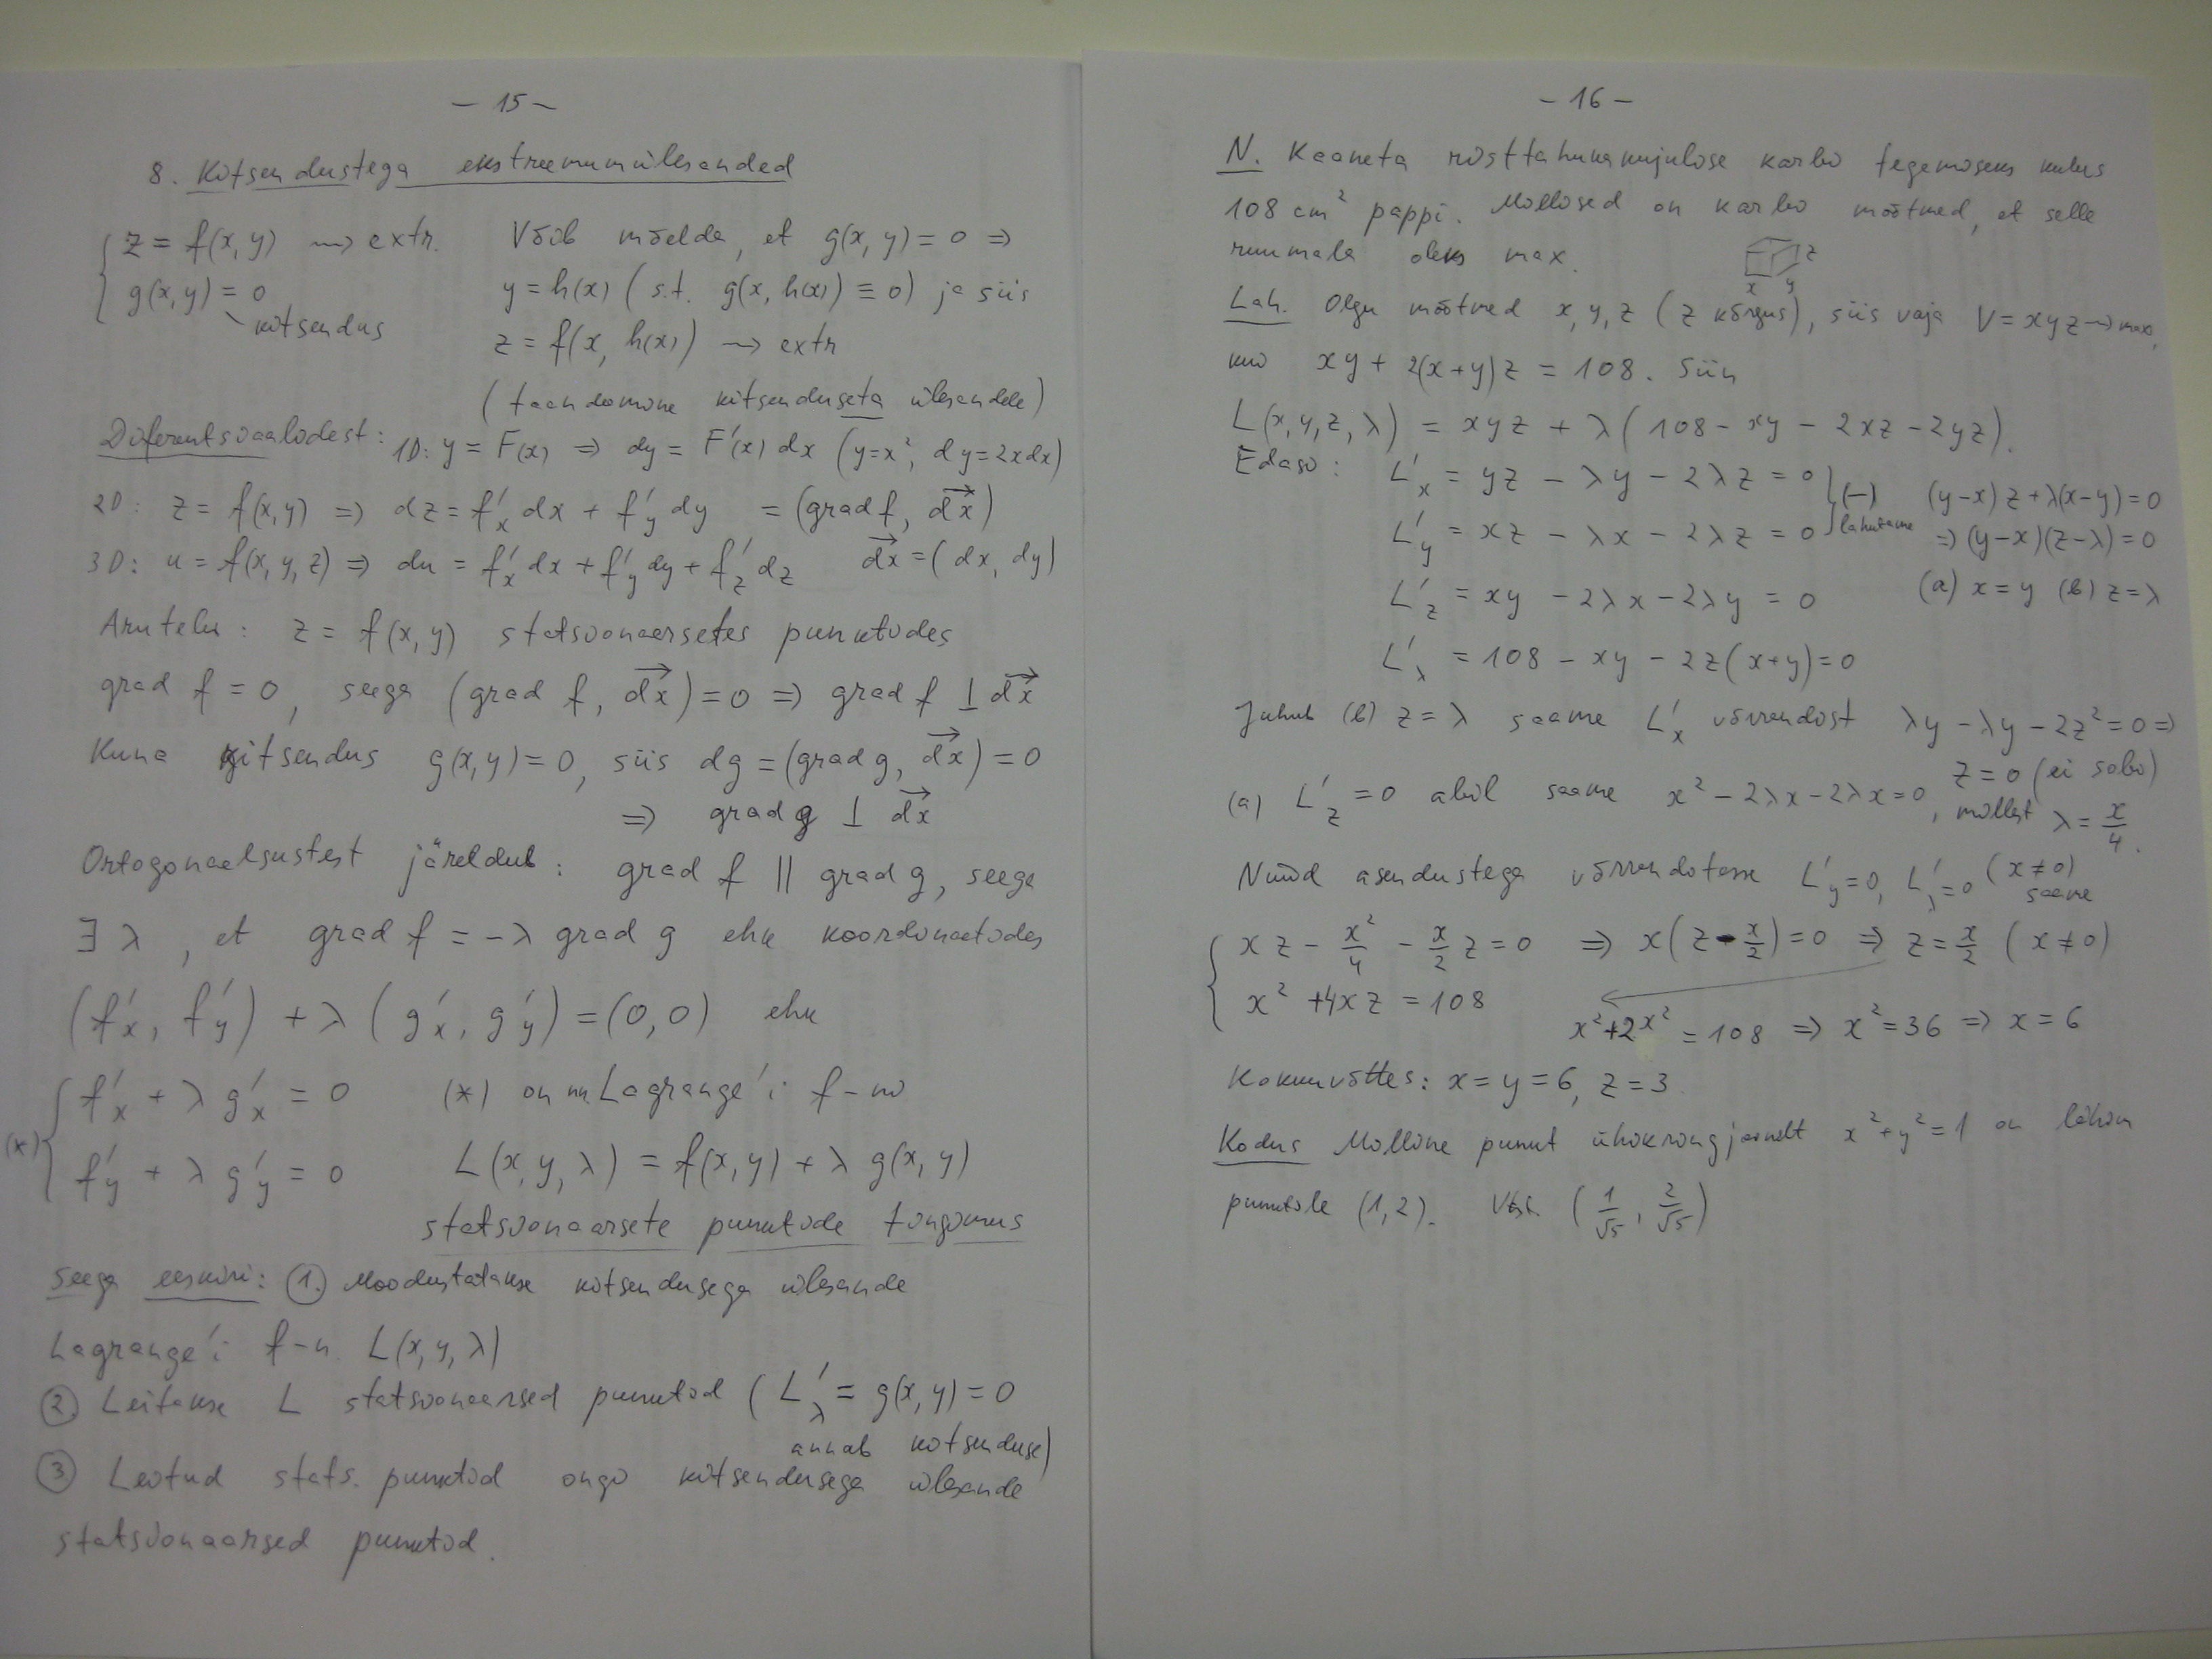 – 15 –
8. Kitsendustega ekstreemumülesanded
z = f(x, y) ⇝ extr.
g(x, y) = 0
kitsendus
Võib mõelda, et g(x, y) = 0 ⇒
y = h(x) (s.t. g(x, h(x)) ≡ 0) ja siis
z = f(x, h(x)) ⇝ extr
(taandamine kitsenduseta ülesandele)
Diferentsiaalidest: 1D: y = F(x) ⇒ dy = F'(x) dx (y=x², dy=2xdx)
2D: z = f(x, y) ⇒ dz = f'x dx + f'y dy = (grad f, d⃗x)
3D: u = f(x, y, z) ⇒ du = f'x dx + f'y dy + f'z dz d⃗x = (dx, dy)
Arutelu: z = f(x, y) statsionaarsetes punktides
grad f = 0, seega (grad f, d⃗x) = 0 ⇒ grad f ⊥ d⃗x
Kuna kitsendus g(x, y) = 0, siis dg = (grad g, d⃗x) = 0
⇒ grad g ⊥ d⃗x
Ortogonaalsustest järeldub: grad f || grad g, seega
∃ λ, et grad f = −λ grad g ehk koordinaatides
(f'x, f'y) + λ (g'x, g'y) = (0, 0) ehk
(*) f'x + λ g'x = 0
f'y + λ g'y = 0
(*) on nn Lagrange'i f-ni
L(x, y, λ) = f(x, y) + λ g(x, y)
statsionaarsete punktide tingimus
Seega eeskiri: 1. Moodustatakse kitsendusega ülesande
Lagrange'i f-n. L(x, y, λ)
2. Leitakse L statsionaarsed punktid (L'λ = g(x, y) = 0
annab kitsenduse)
3 Leitud stats. punktid ongi kitsendusega ülesande
statsionaarsed punktid.
– 16 –
N. Kaaneta risttahukakujulise karbi tegemiseks kulus
108 cm² pappi. Millised on karbi mõõtmed, et selle
ruumala oleks max.
x y z
Lah. Olgu mõõtmed x, y, z (z kõrgus), siis vaja V = xyz ⇝ max,
kui xy + 2(x+y)z = 108. Siin
L(x, y, z, λ) = xyz + λ(108 − xy − 2xz − 2yz).
Edasi: L'x = yz − λy − 2λz = 0 (−) (y−x)z + λ(x−y) = 0
L'y = xz − λx − 2λz = 0 lahutame ⇒ (y−x)(z−λ) = 0
L'z = xy − 2λx − 2λy = 0 (a) x = y (b) z = λ
L'λ = 108 − xy − 2z(x+y) = 0
Juhul (b) z = λ saame L'x võrrandist λy − λy − 2z² = 0 ⇒
z = 0 (ei sobi)
(a) L'z = 0 abil saame x² − 2λx − 2λx = 0, millest λ = x/4.
Nüüd asendustega võrranditesse L'y = 0, L'λ = 0 (x ≠ 0)
saame
xz − x²/4 − x/2 z = 0 ⇒ x(z − x/2) = 0 ⇒ z = x/2 (x ≠ 0)
x² + 4xz = 108
x² + 2x² = 108 ⇒ x² = 36 ⇒ x = 6
Kokkuvõttes: x = y = 6, z = 3
Kodus Milline punkt ühikringjoonelt x² + y² = 1 on lähim
punktile (1, 2). Vast. (1/√5, 2/√5)